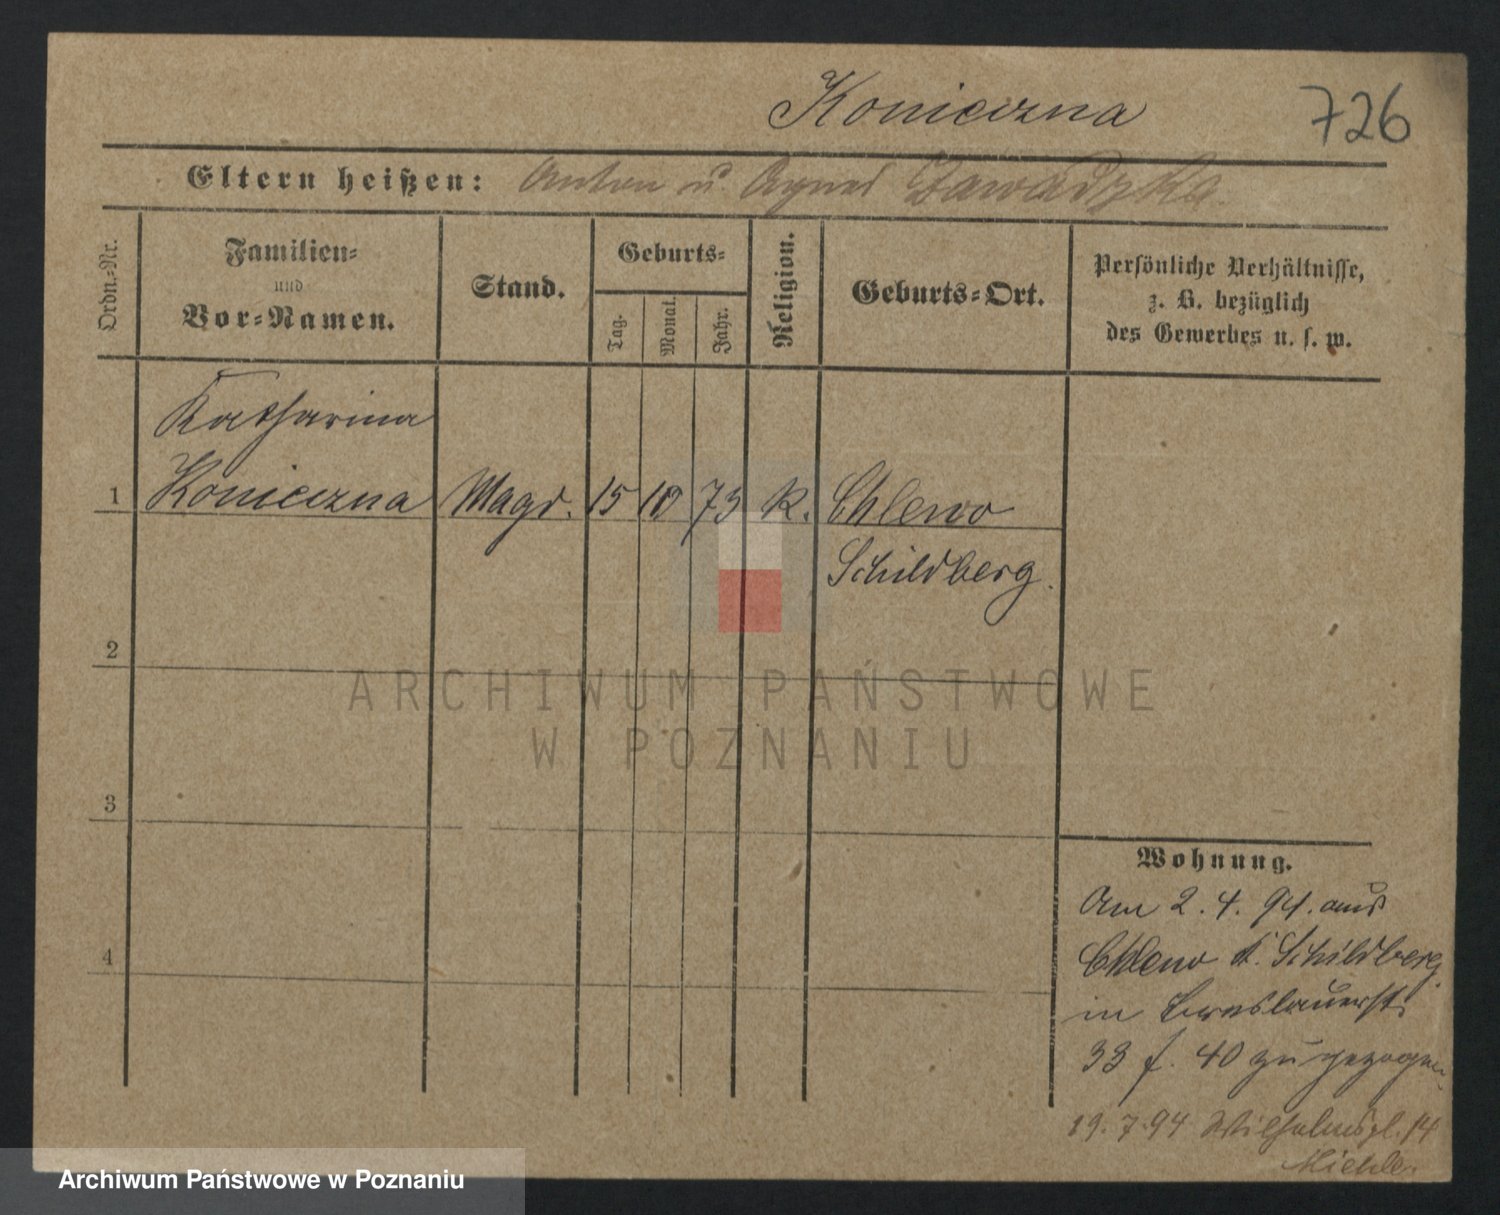 Konieczna
726
Eltern heißen: Anton u. Agnes Zawadzka.
Ordn.-Nr.
Familien-
und
Vor-Namen.
Stand.
Geburts-
Tag.
Monat.
Jahr.
Religion.
Geburts-Ort.
Persönliche Verhältnisse,
z. B. bezüglich
des Gewerbes u. s. w.
Katharina
1 Konieczna Magd. 15 10 73 K. Chlewo
Schildberg.
2
ARCHIWUM PAŃSTWOWE
W POZNANIU
3
Wohnung.
Am 2. 4. 94. aus
4
Chlewo K. Schildberg
in Breslauerst.
33 f. 40 zu gezogen
19. 7. 94 Wilhelmspl. 14
Archiwum Państwowe w Poznaniu